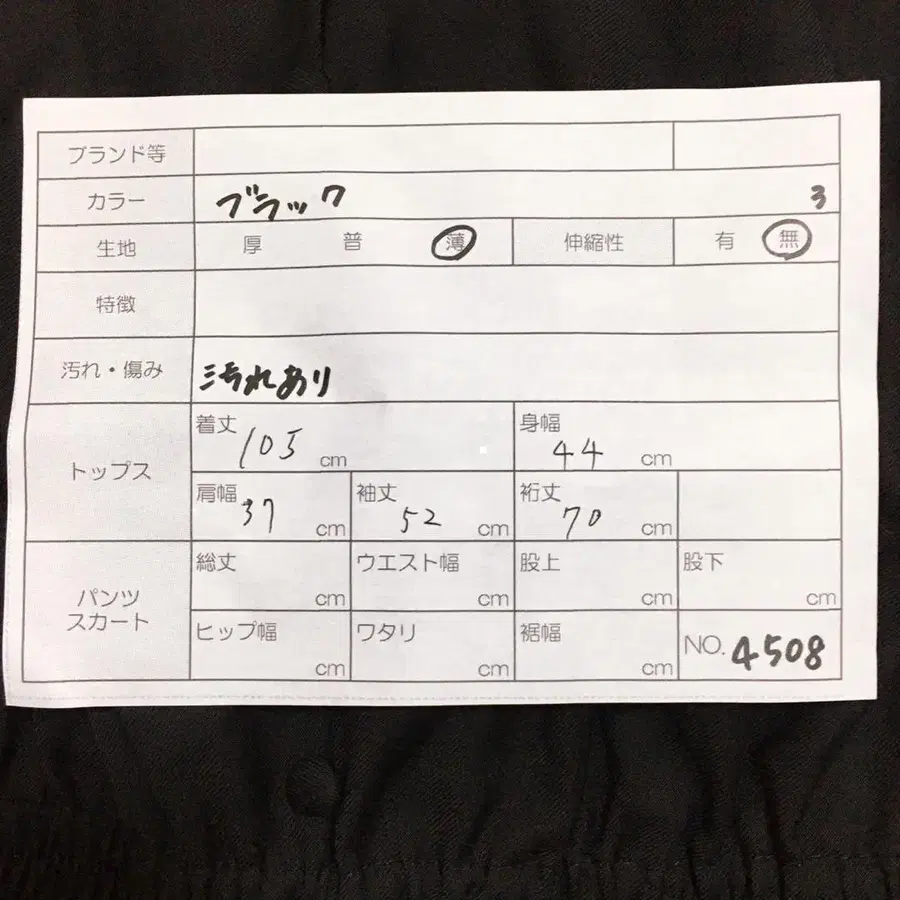 ブランド等
カラー ブラック 3
生地 厚 普 薄 伸縮性 有 無
特徴
汚れ・傷み 汚れあり
トップス
着丈 105 cm 身幅 44 cm
肩幅 37 cm 袖丈 52 cm 裄丈 70 cm
パンツ
スカート
総丈 cm ウエスト幅 cm 股上 cm 股下 cm
ヒップ幅 cm ワタリ cm 裾幅 cm NO. 4508